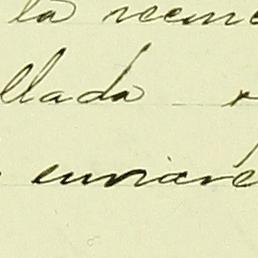 la recono
llada
enviaré